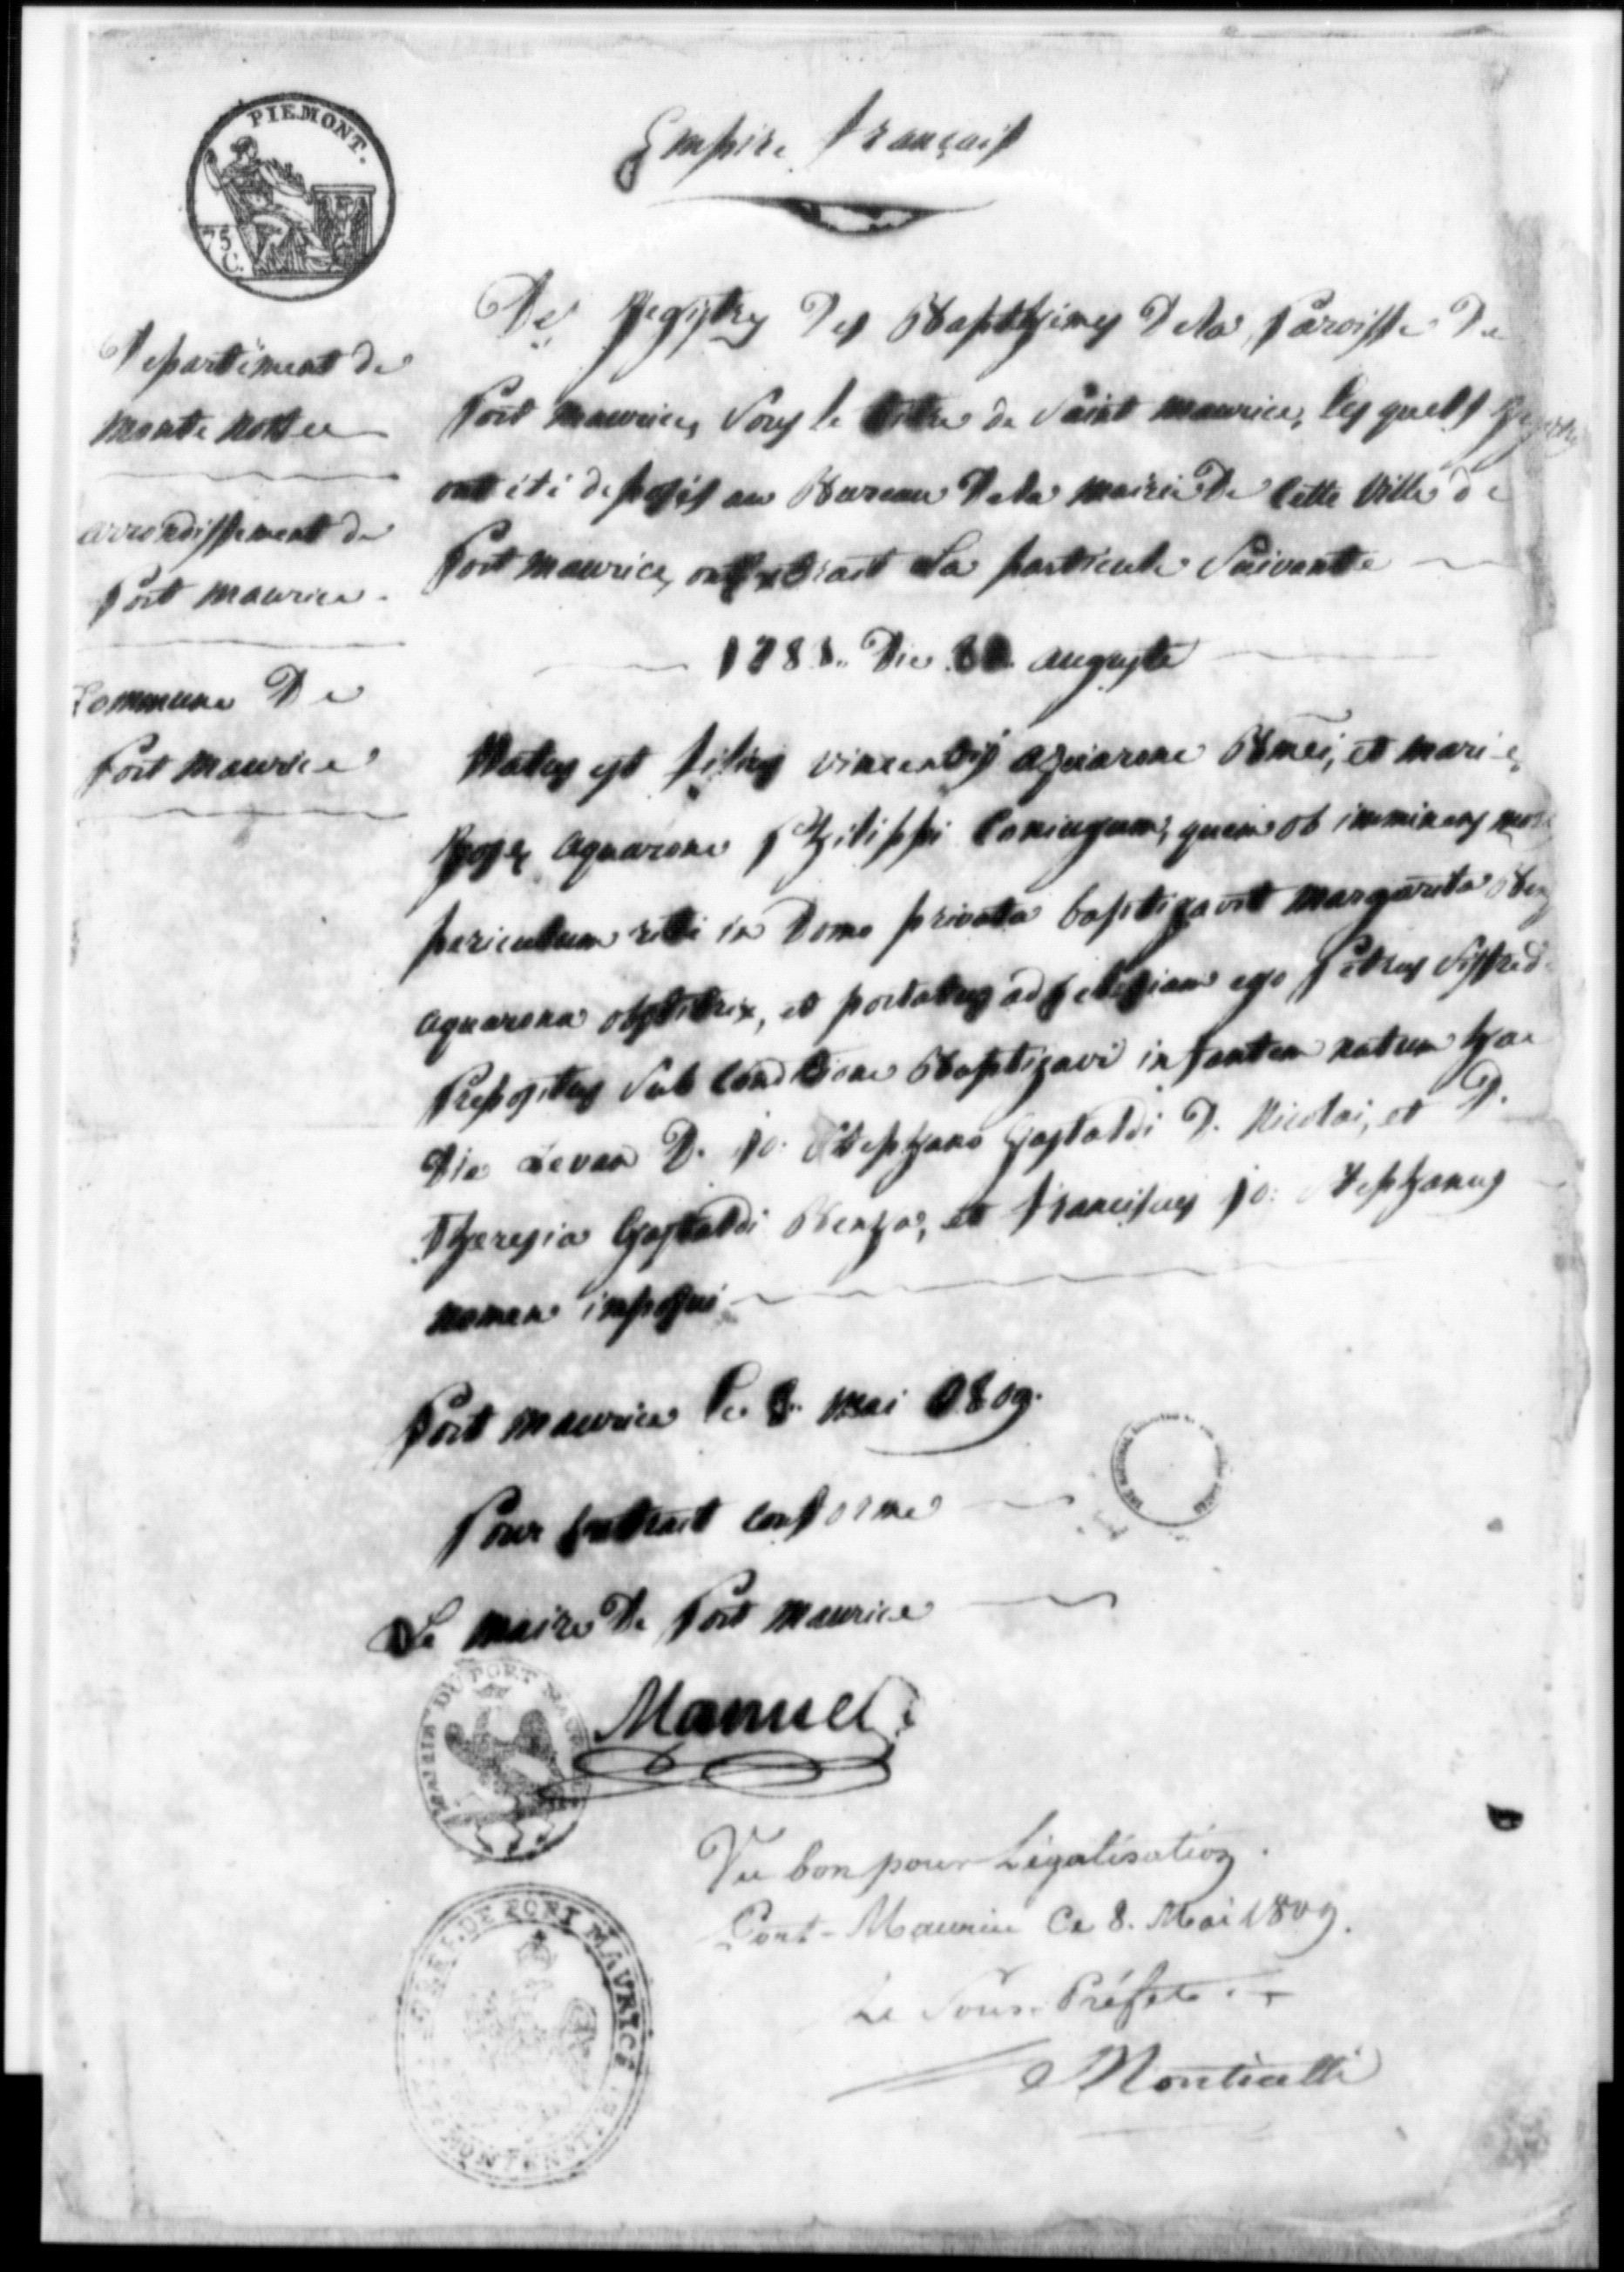 PIEMONT.
75
C.
Empire français
Departement de
Monte notte
arrondissement de
Port Maurice.
Commune De
Port Maurice
Des Registres Des Baptesimes De la Paroisse De
Port Maurice, Sous le titre de Saint Maurice, les quels
ont eté deposés au Bureau De la Mairie De Cette Ville de
Port Maurice, ont extrait la particule Suivante
1788. Die auguste
Natus est filius Vincentij aquarone et Marie
Rose aquarone Philippi Coniugum, quem ob imminens
periculum rite in Domo privata baptizavit Margarita
aquarona obstetrix, et portatus ad Eclesiam ego Petrus
Prepositus Sub Conditione Baptizavi infantem natum hac
Die Levan D. Jo: Stephano Gastaldi D. Nicolai, et D.
Theresia Gastaldi et Franciscus Jo: Stephanus
nomen imposui
Port Maurice le 8 Mai 1809.
Pour Extrait conforme
Le Maire De Port Maurice
MAIRIE DU PORT MAURICE
Manuel
Vu bon pour Légalisation.
Port-Maurice Ce 8. Mai 1809.
Le Sous-Préfet
Monticelli
DE PORT MAURICE